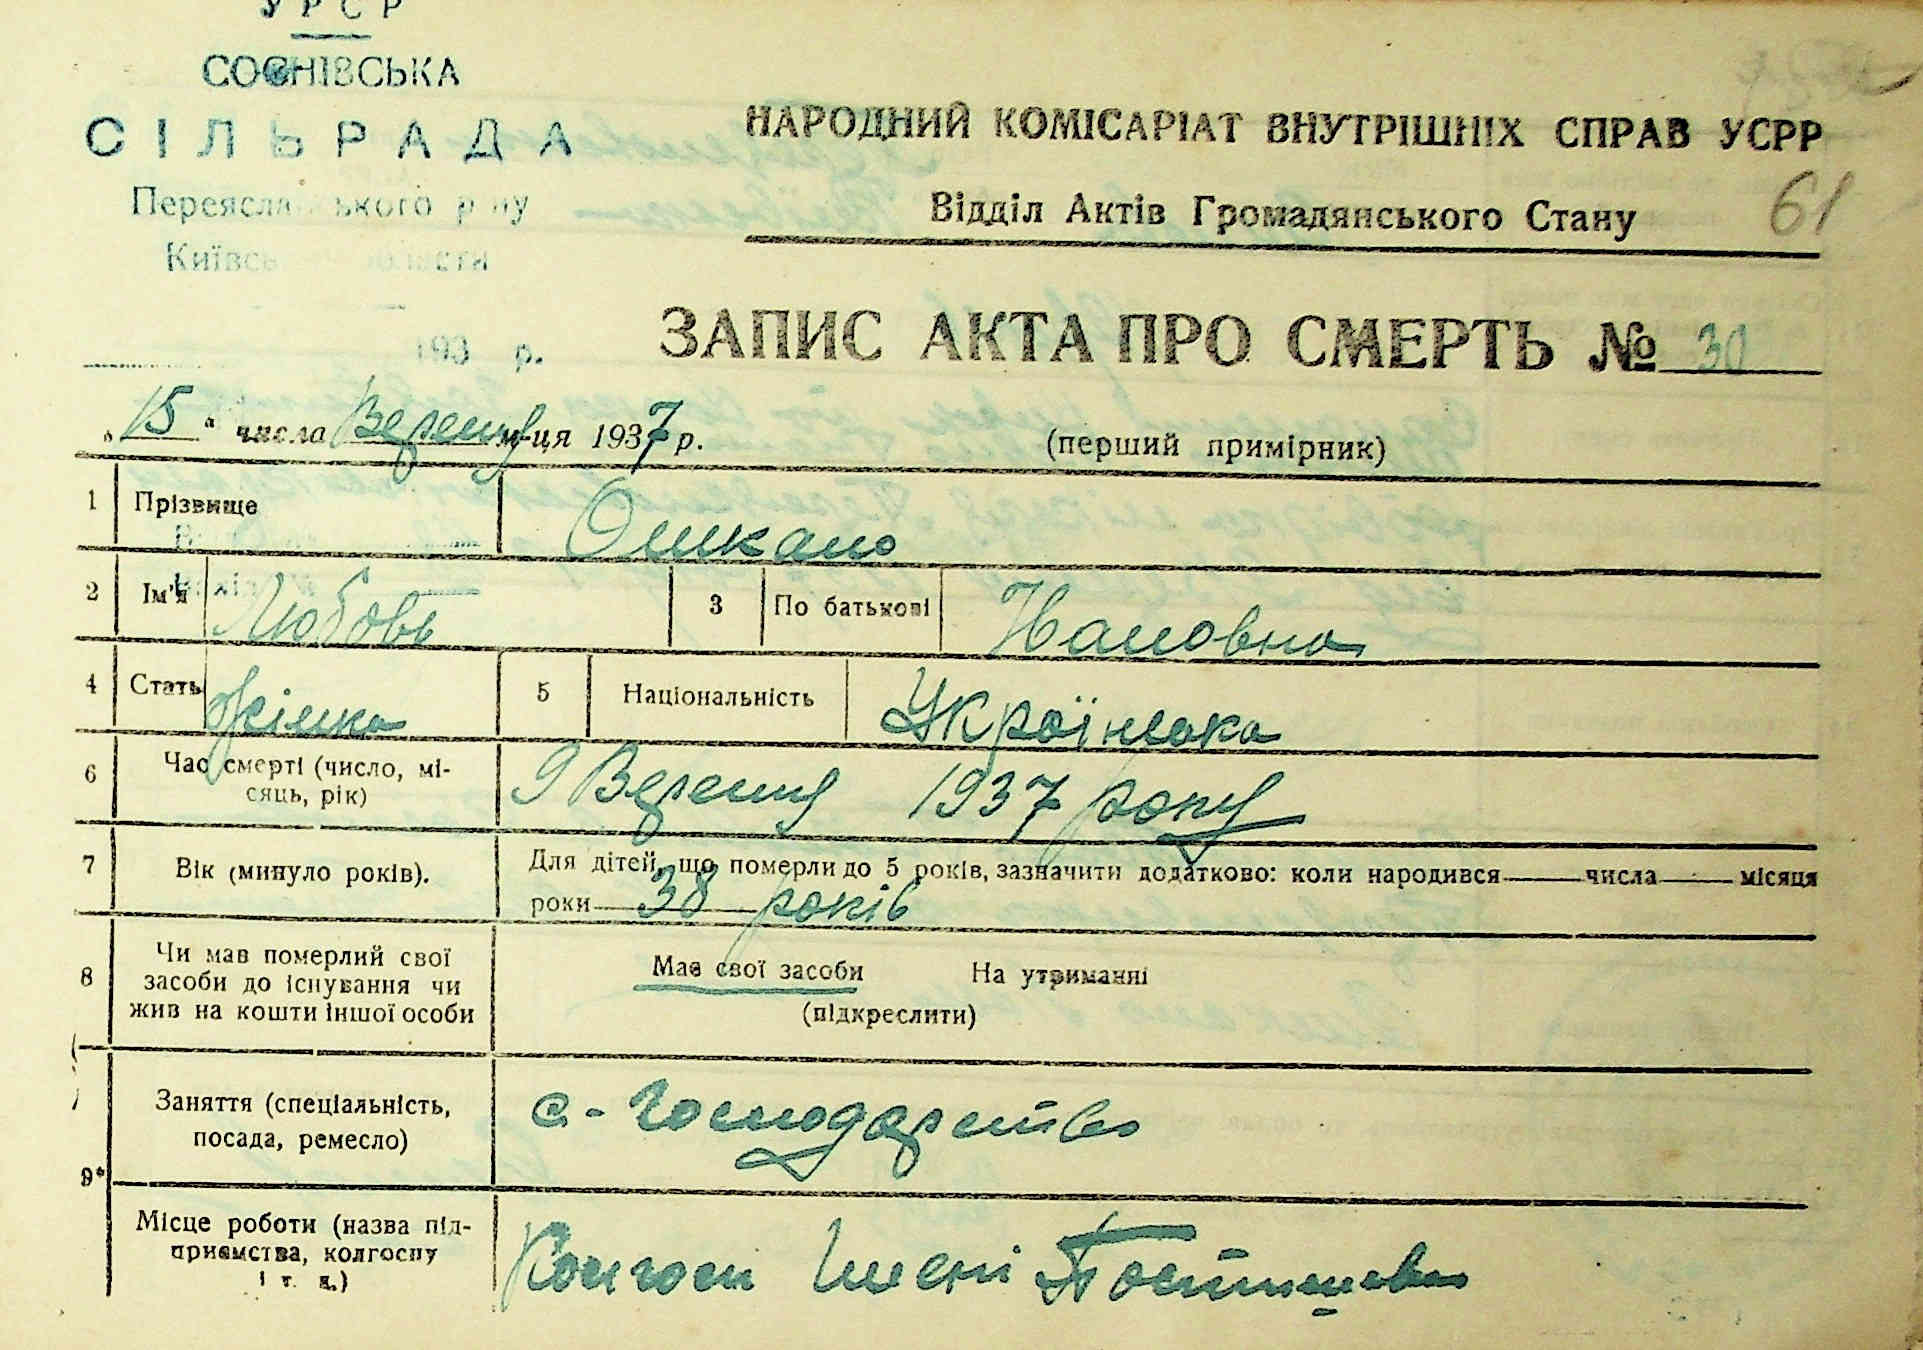 УРСР
СОСНІВСЬКА
СІЛЬРАДА
Переяславського р-ну
Київської области
193 р.
НАРОДНИЙ КОМІСАРІАТ ВНУТРІШНІХ СПРАВ УСРР
Відділ Актів Громадянського Стану
61
ЗАПИС АКТА ПРО СМЕРТЬ № 30
„15" числа Вересня м-ця 1937 р.
(перший примірник)
1 Прізвище Ошкало
2 Ім'я Любовь 3 По батькові
4 Стать жінка 5 Національність Українська
6 Час смерті (число, мі-
сяць, рік) 9 Вересня 1937 року
7 Вік (минуло років). Для дітей, що померли до 5 років, зазначити додатково: коли народився числа місяця
роки 38 років
8 Чи мав померлий свої
засоби до існування чи
жив на кошти іншої особи
Має свої засоби На утриманні
(підкреслити)
9* Заняття (спеціальність,
посада, ремесло) с-господарство
Місце роботи (назва під-
приємства, колгоспу
і т. д.) Колгосп Імені Постишева